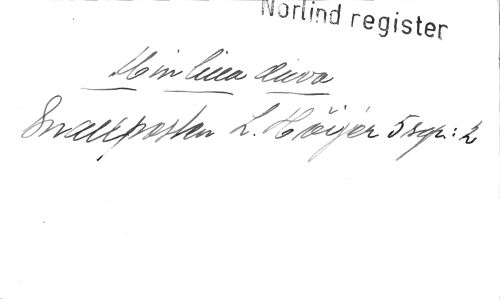 Norlind register
Min lilla diva
Snällposten L. Höijer 5 sqr: 2